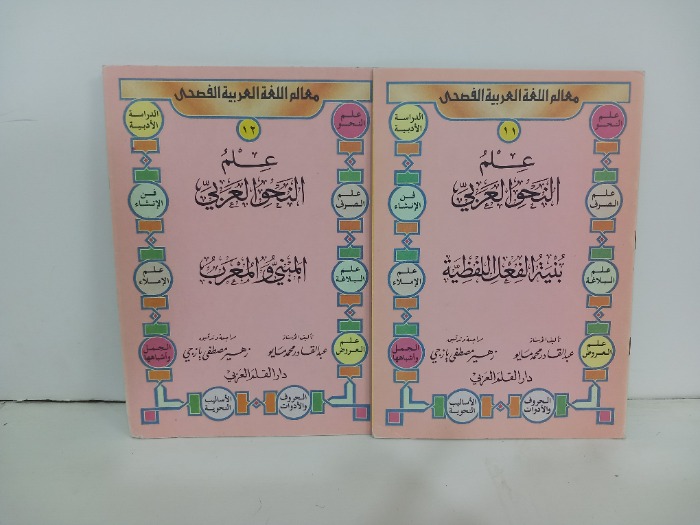 معالم اللغة العربية الفصحى
١١
علم النحو
الدراسة الأدبية
علم
النحو العربي
علم الصرف
فن الإنشاء
بنية الفعل اللفظية
علم البلاغة
علم الإملاء
تأليف الأستاذ
عبد القادر محمد مايو
مراجعة وتدقيق
زهير مصطفى يازجي
علم العروض
الجمل وأشباهها
دار القلم العربي
الحروف والأدوات
الأساليب النحوية
معالم اللغة العربية الفصحى
١٢
علم النحو
الدراسة الأدبية
عِلمُ
النحو العربي
علم الصرف
فن الإنشاء
المبني والمعرب
علم البلاغة
علم الإملاء
تأليف الأستاذ
عبد القادر محمد مايو
مراجعة وتدقيق
زهير مصطفى يازجي
علم العروض
الجمل وأشباهها
دار القلم العربي
الحروف والأدوات
الأساليب النحوية